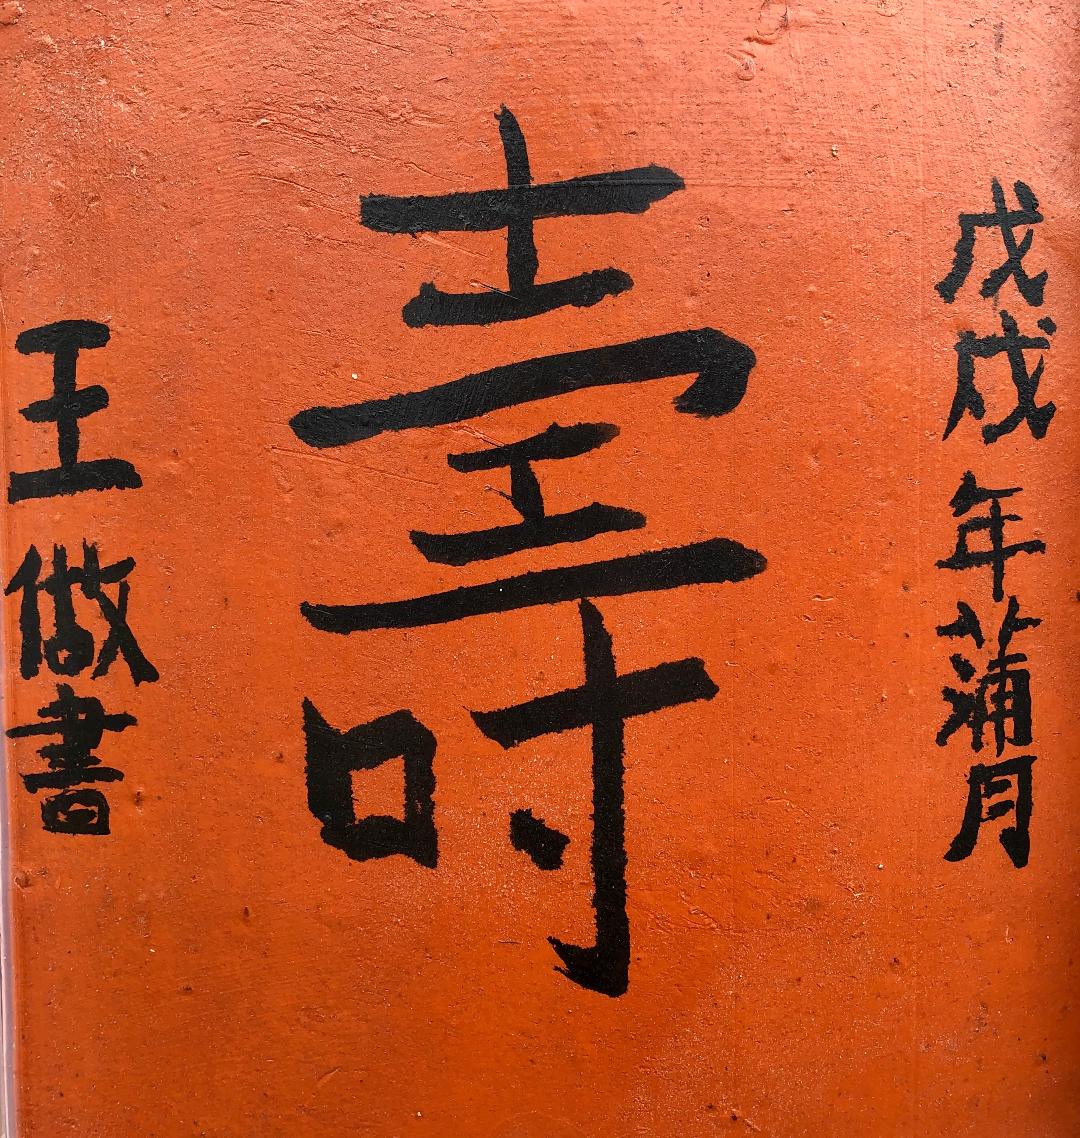 戊戌年蒲月
壽
王倣書